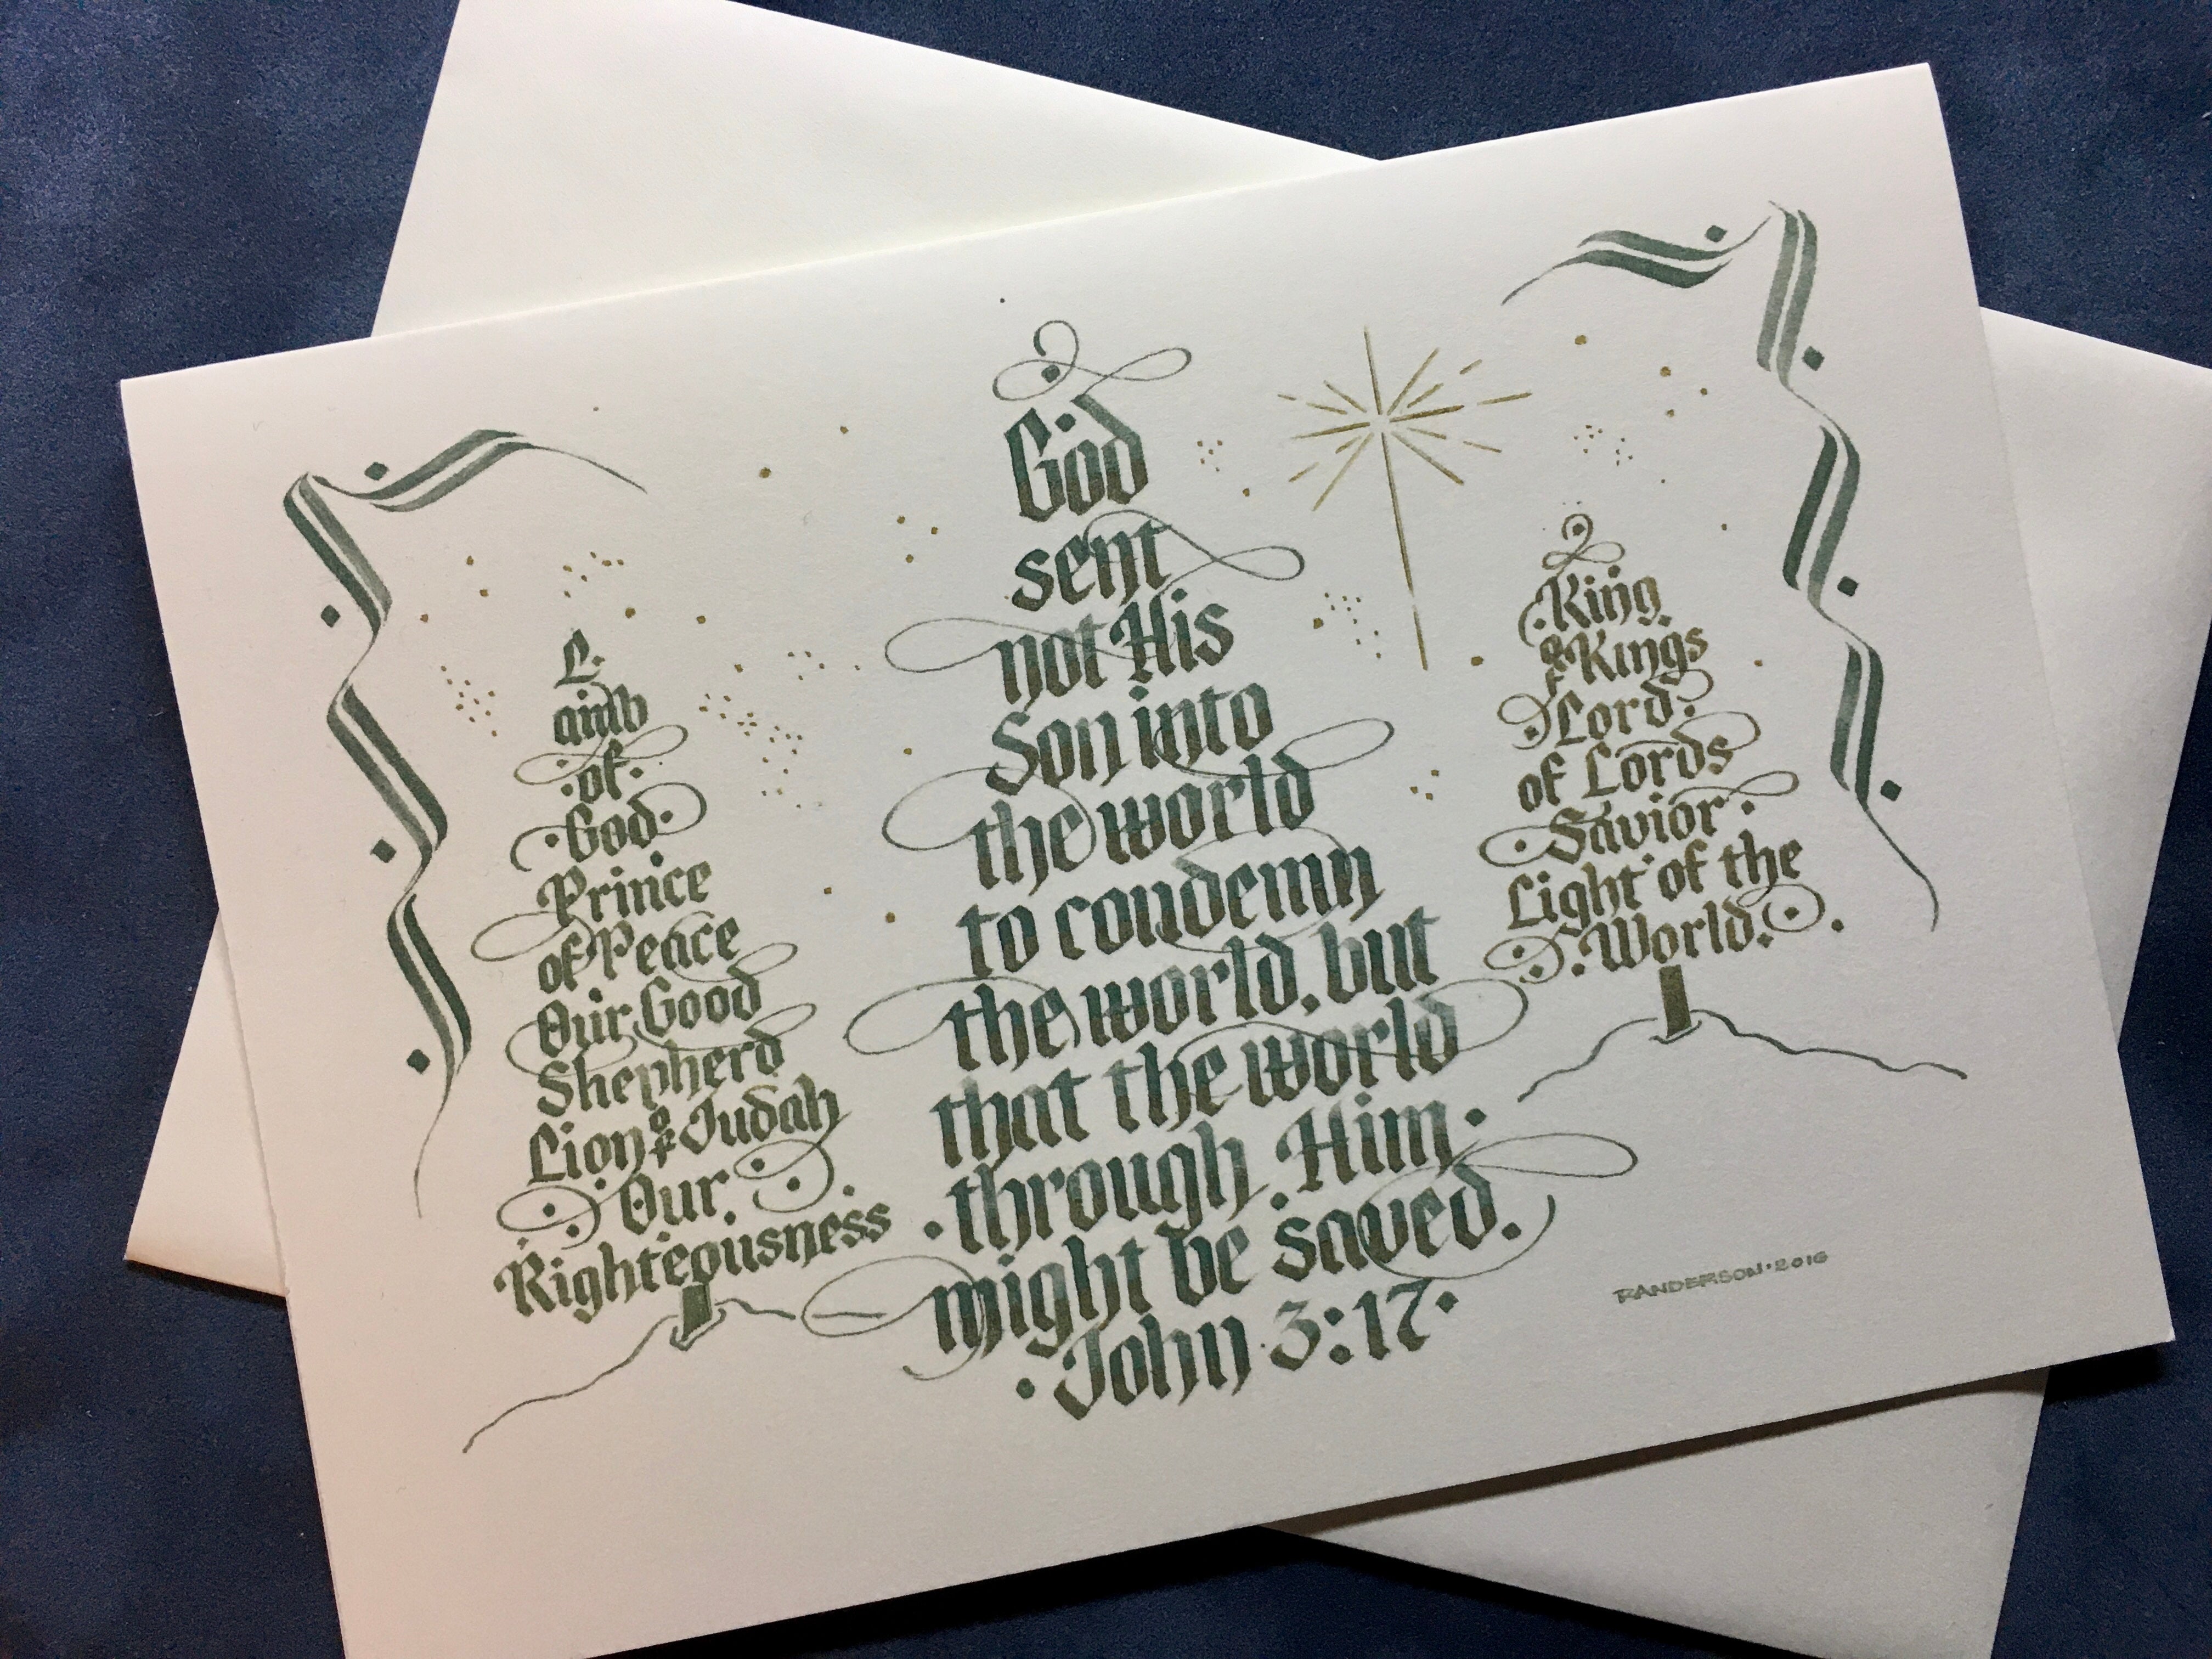 L
amb
of
God
Prince
of Peace
Our Good
Shepherd
Lion of Judah
Our
Righteousness
God
sent
not His
Son into
the world
to condemn
the world, but
that the world
through Him
might be saved.
John 3:17
King
of Kings
Lord
of Lords
Savior
Light of the
World
RANDERSON·2016